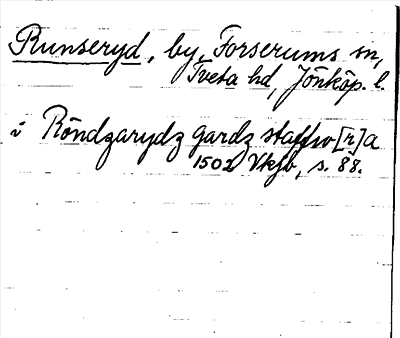 Runseryd, by, Forserums sn,
Tveta hd, Jönköp. l.
i Röndzarydz gardz staffro[r]a
1502 Vkjb, s. 88.